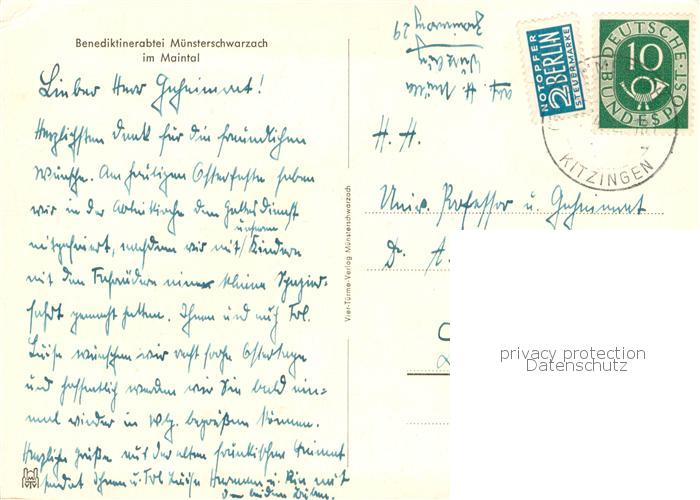 Benediktinerabtei Münsterschwarzach
im Maintal
Lieber Herr Geheimrat!
Herzlichsten Dank für die freundlichen
Wünsche. Am heutigen Osterfeste haben
wir in der Abteikirche den Gottesdienst
mitgefeiert, nachdem wir mit unseren Kindern
mit den Fahrrädern eine kleine Spazier-
fahrt gemacht hatten. Ihnen und auch Frl.
Luise wünschen wir recht frohe Ostertage
und hoffentlich werden wir Sie bald ein-
mal wieder in Wbg. begrüßen können.
Herzliche Grüße aus der alten fränkischen Heimat
sendet Ihnen u. Frl. Luise Hermann u. mit
den beiden Buben.
Vier-Türme-Verlag Münsterschwarzach
Abs. H. Müller
Würzburg
29
NOTOPFER
2 BERLIN
STEUERMARKE
DEUTSCHE
10
BUNDESPOST
KITZINGEN
H. H.
Univ. Professor u. Geheimrat
Dr. A.
privacy protection
Datenschutz